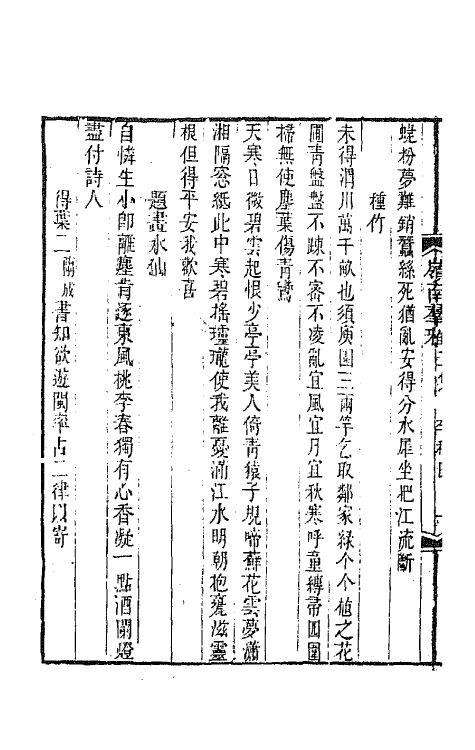 嶺南羣雅
蛖粉夢難銷蠶絲死猶亂安得分水犀坐把江流斷
種竹
未得渭川萬千畝也須庾園三兩竿乞取鄰家綠个个植之花
圃青盤盤不疎不密不凌亂宜風宜月宜秋寒呼童縛帚囬圍
掃無使塵葉傷青鸞
天寒日微碧雲起恨少亭亭美人倚青猿子規啼蘚花雲夢瀟
湘隔窓紙此中寒碧搖瓏瓏使我離憂滿江水明朝抱甕滋靈
根但得平安我歡喜
題畫水仙
自憐生小卽離塵肯逐東風桃李春獨有心香凝一點酒闌燈
盡付詩人
得葉二蘭成書知欲遊閩率占二律以寄